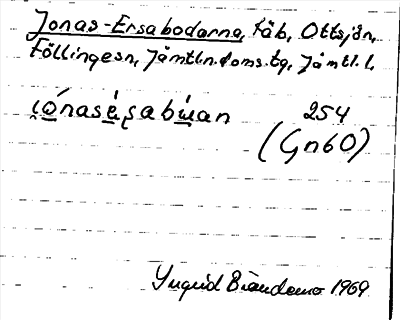 Jonas-Ersabodarna, fäb, Ottsjön,
Föllinge sn, Jämtl.n.doms.tg, Jämtl. l.
i̯ó̱nasé̱ʂabú̱an 254
(Gn60)
Yngrid 1969